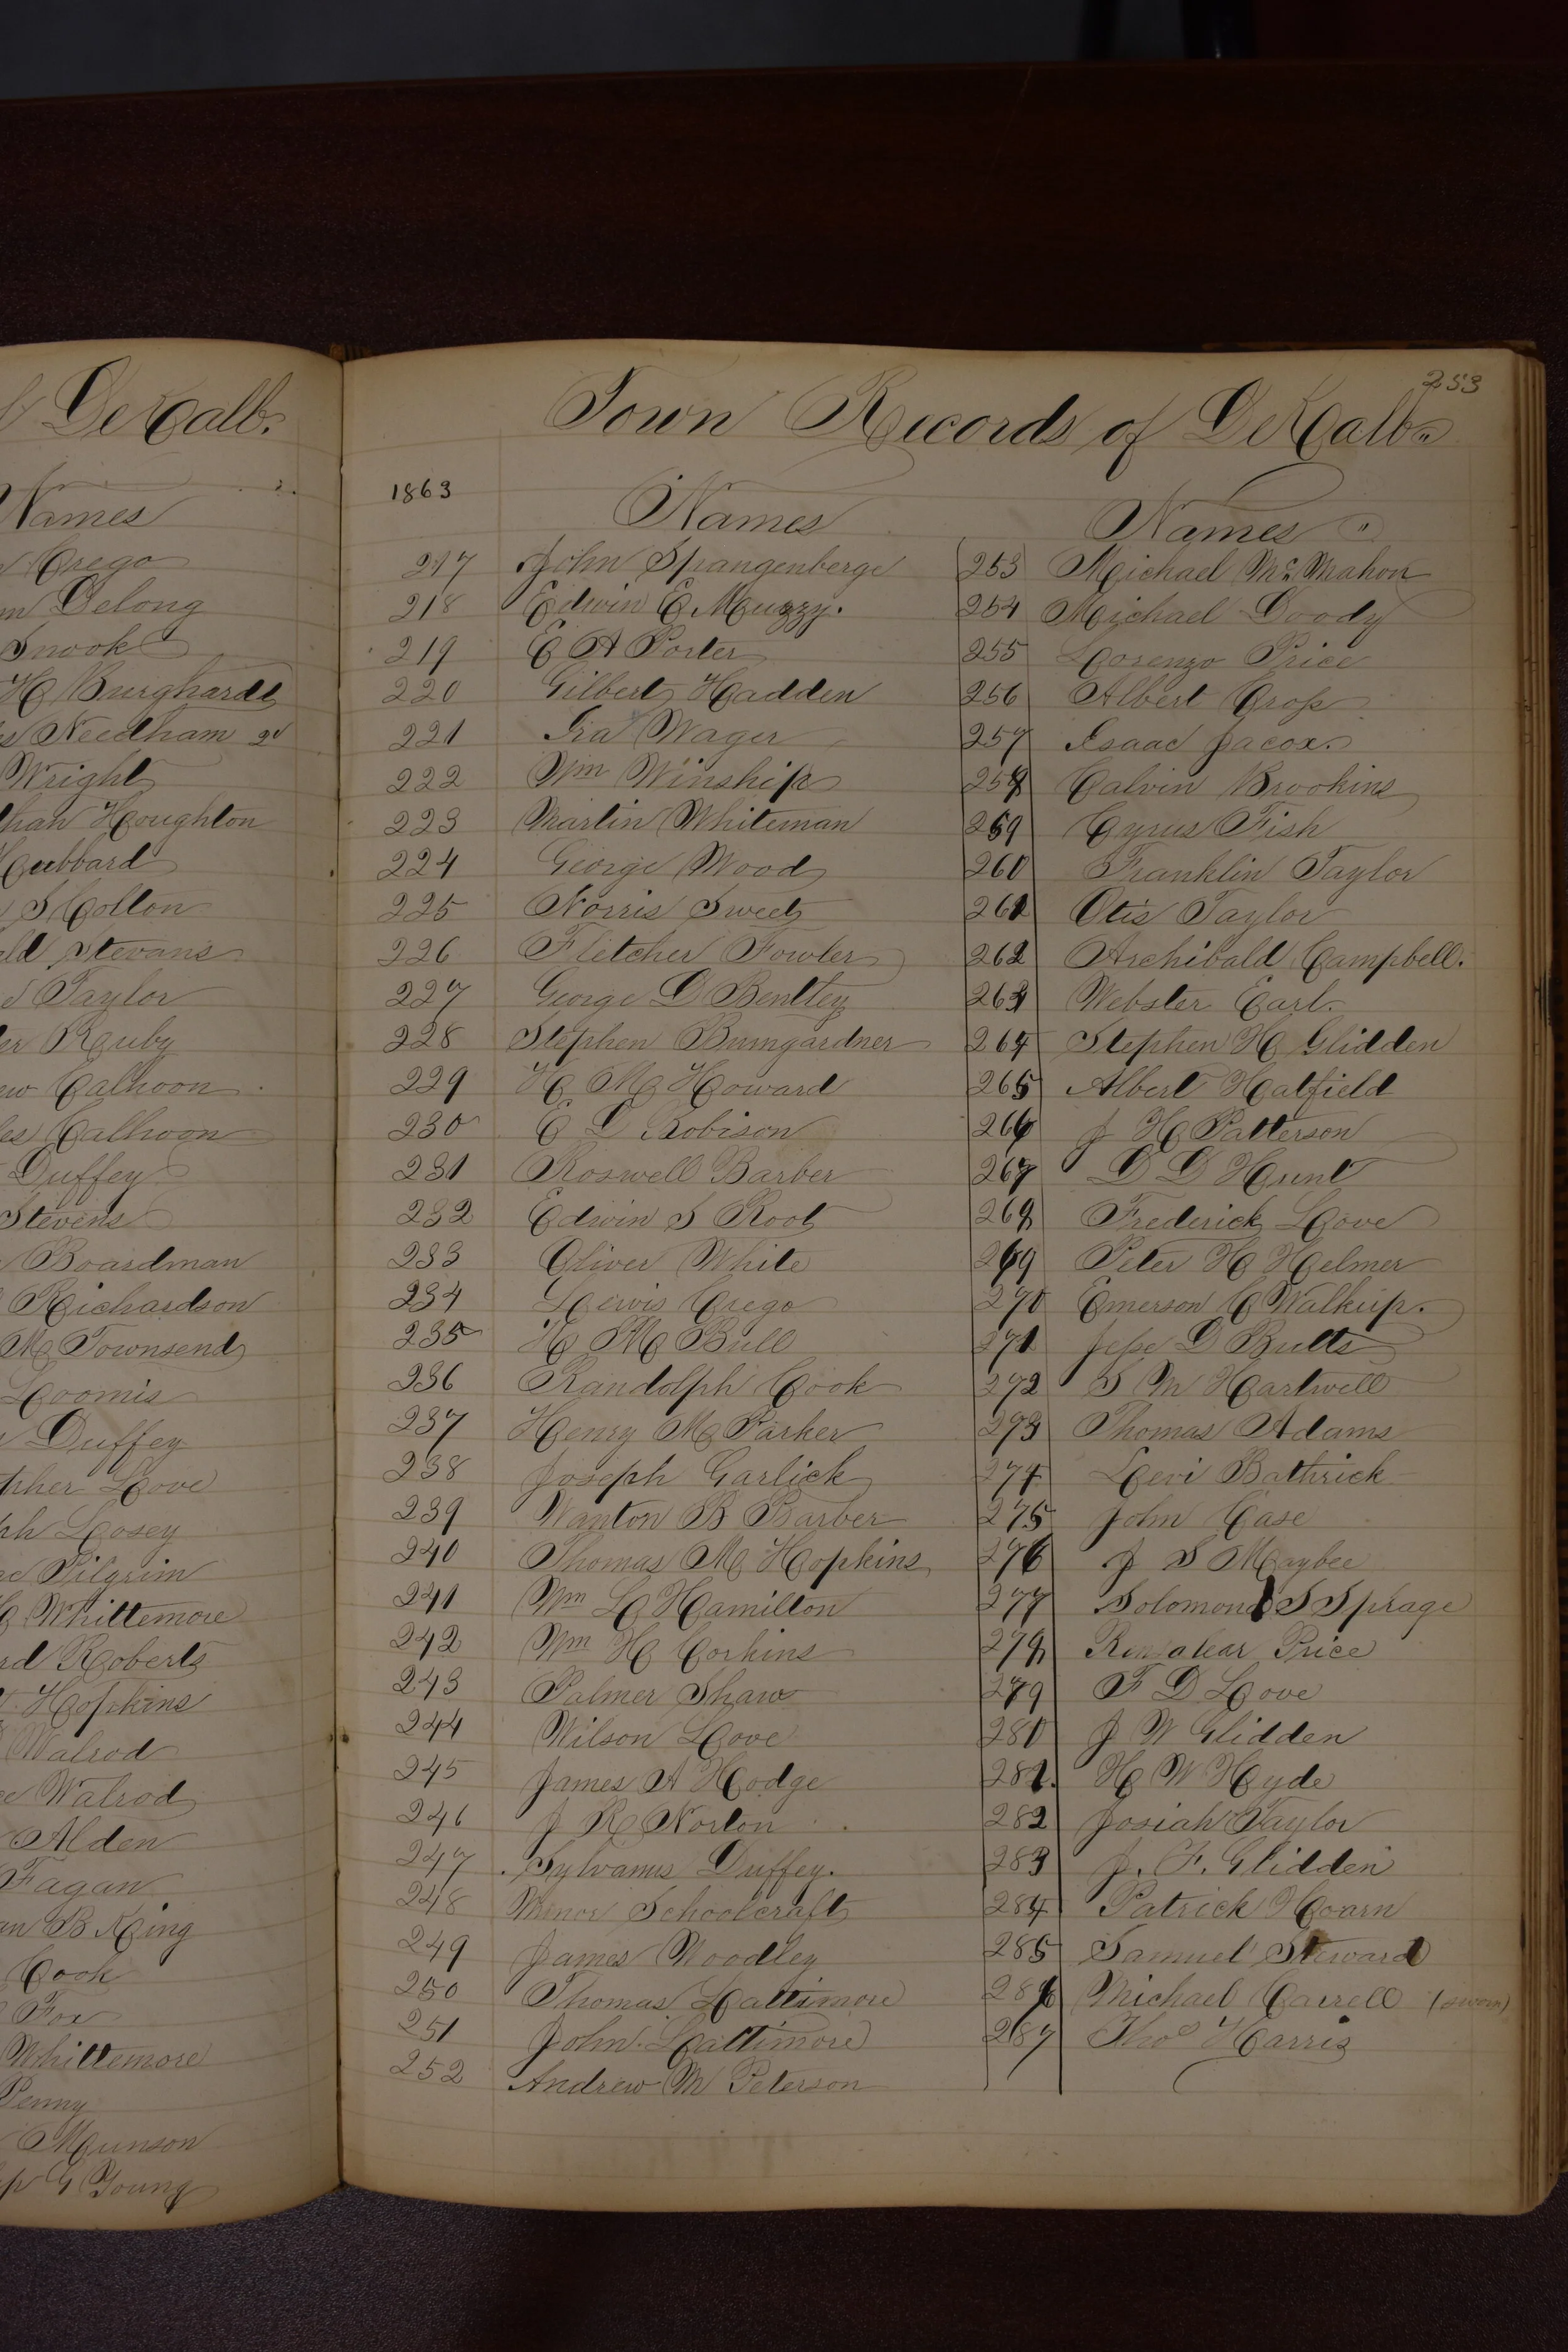 DeKalb.
Names
Crego
Delong
Snook
H Burghardt
Needham 2d
Wright
Houghton
Hubbard
S Colton
Stevans
Taylor
Ruby
Calhoon
Calhoon
Duffey
Stevens
Boardman
Richardson
M Townsend
Loomis
Duffey
Love
Losey
Pilgrim
Whittemore
Roberts
Hopkins
Walrod
Walrod
Alden
Fagan
B King
Cook
Fox
Whittemore
Penny
Munson
G Young
253
Town Records of DeKalb
1863
Names
217 John Spangenberge
218 Edwin E Muzzy.
219 E A Porter
220 Gilbert Hadden
221 Ira Wager
222 Wm Winship
223 Martin Whiteman
224 George Wood
225 Norris Sweet
226 Fletcher Fowler
227 George D Bentley
228 Stephen Bumgardner
229 H M Howard
230 E D Robison
231 Roswell Barber
232 Edwin S Root
233 Oliver White
234 Lewis Crego
235 H M Bull
236 Randolph Cook
237 Henry M Parker
238 Joseph Garlick
239 Wanton B Barber
240 Thomas M Hopkins
241 Wm L Hamilton
242 Wm H Corkins
243 Palmer Shaw
244 Wilson Love
245 James A Hodge
246 J R Norton
247 Sylvanus Duffey.
248 Menor Schoolcraft
249 James Woodley
250 Thomas Lattimore
251 John Lattimore
252 Andrew M Peterson
Names
253 Michael Mc Mahon
254 Michael Doody
255 Lorenzo Price
256 Albert Gross
257 Isaac Jacox.
258 Calvin Brookins
259 Cyrus Fish
260 Franklin Taylor
261 Otis Taylor
262 Archibald Campbell.
263 Webster Earl.
264 Stephen H Glidden
265 Albert Hatfield
266 J H Patterson
267 D D Hunt
268 Frederick Love
269 Peter H Helmer
270 Emerson C Walkup.
271 Jesse D Butts
272 S M Hartwell
273 Thomas Adams
274 Levi Bathrick
275 John Case
276 J S Maybee
277 Solomon S Sprage
278 Rensalear Price
279 F D Love
280 J W Glidden
281. H W Hyde
282 Josiah Taylor
283 J. F. Glidden
284 Patrick Hoarn
285 Samuel Steward
286 Michael Carrell (sworn)
287 Thos Harris